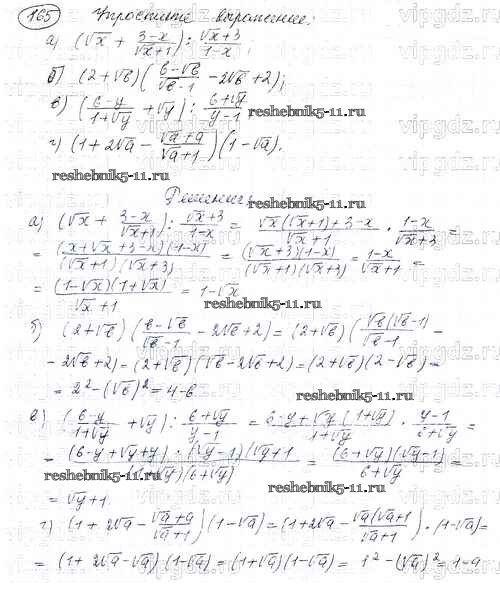 165 Упростите выражение:
а) (√x + (3-x)/(√x+1)) : (√x+3)/(1-x);
б) (2+√b) ((b-√b)/(√b-1) - 2√b + 2);
в) ((6-y)/(1+√y) + √y) : (6+√y)/(y-1)
г) (1+2√a - (√a+a)/(√a+1)) (1-√a).
reshebnik5-11.ru.
reshebnik5-11.ru
Решение:
а) (√x + (3-x)/(√x+1)) : (√x+3)/(1-x) = (√x(√x+1)+3-x)/(√x+1) · (1-x)/(√x+3) =
= ((x+√x+3-x)(1-x))/((√x+1)(√x+3)) = ((√x+3)(1-x))/((√x+1)(√x+3)) = (1-x)/(√x+1) =
= ((1-√x)(1+√x))/(√x+1) = 1-√x
reshebnik5-11.ru
б) (2+√b) ((b-√b)/(√b-1) - 2√b+2) = (2+√b) (√b(√b-1)/(√b-1) -
- 2√b+2) = (2+√b)(√b-2√b+2) = (2+√b)(2-√b) =
= 2²-(√b)² = 4-b
reshebnik5-11.ru
в) ((6-y)/(1+√y) + √y) : (6+√y)/(y-1) = (6-y+√y(1+√y))/(1+√y) · (y-1)/(6+√y) =
= ((6-y+√y+y)·(√y-1)(√y+1)/((1+√y)(6+√y)) = ((6+√y)(√y-1))/(6+√y) =
reshebnik5-11.ru
reshebnik5-11.ru
= √y+1
г) (1+2√a - (√a+a)/(√a+1)) (1-√a) = (1+2√a - √a(√a+1)/(√a+1)) · (1-√a) =
= (1+2√a-√a)(1-√a) = (1+√a)(1-√a) = 1²-(√a)² = 1-a
vipgdz.ru